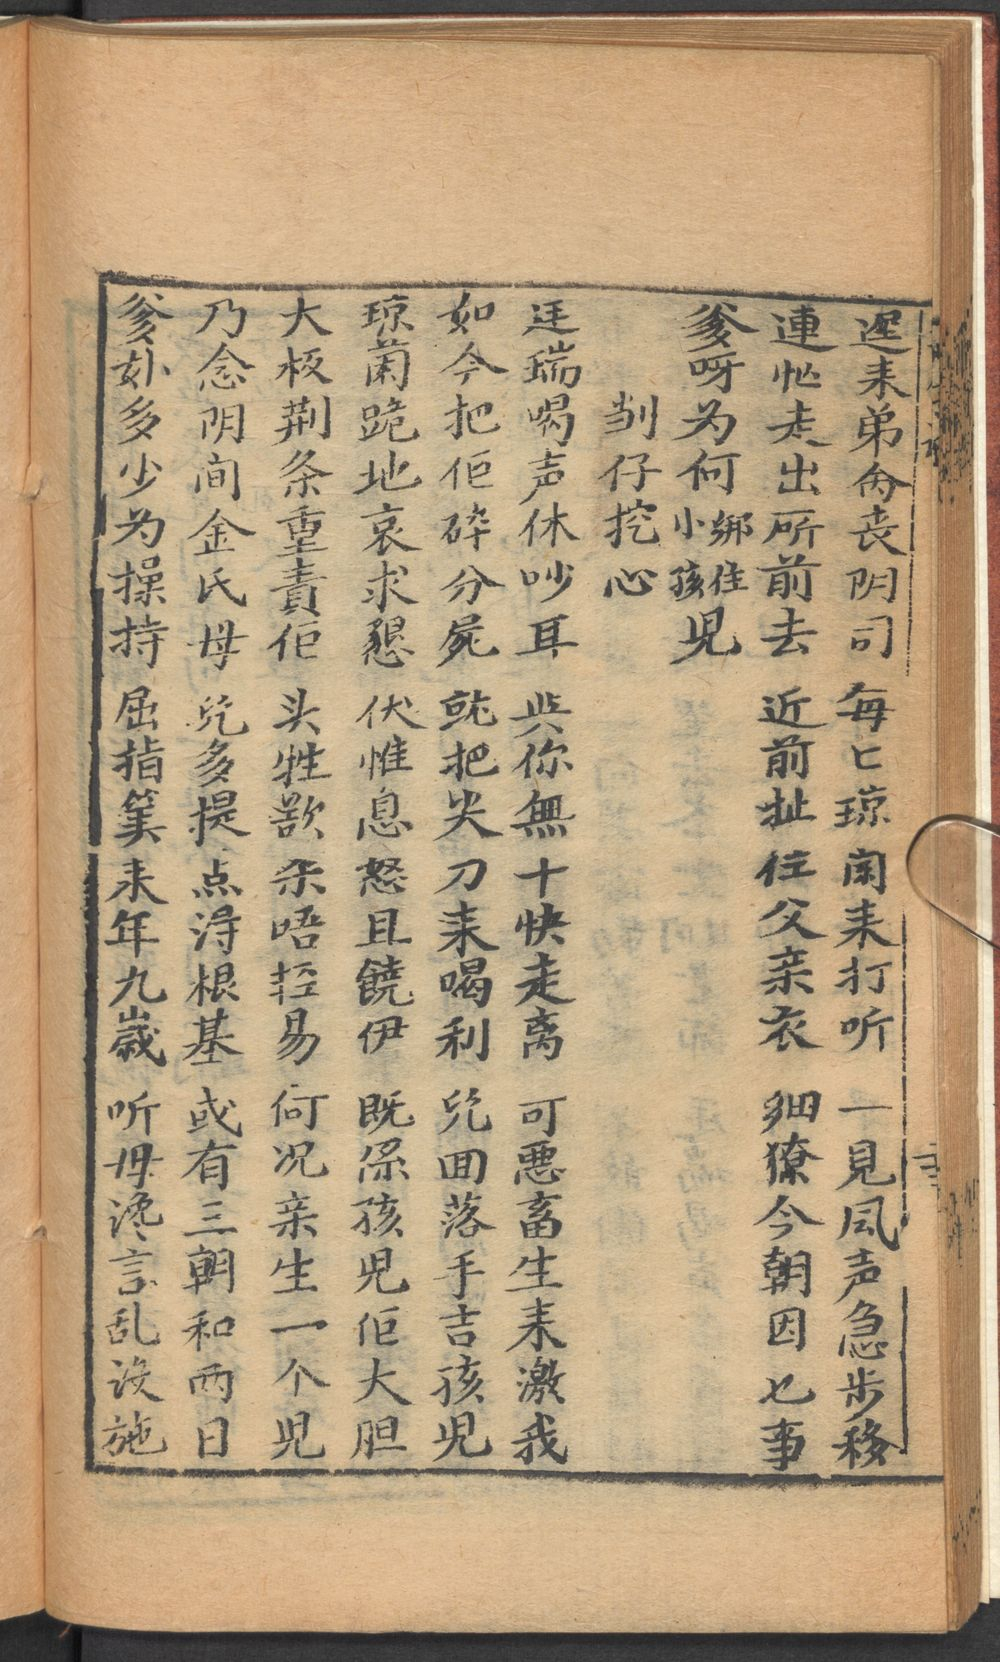 遅耒弟命丧阴司　每匕琼闺耒打听　一見风声急步移
連忙走出所前去　近前扯住父亲衣　細獠今朝因乜事
爹呀为何綁住小孩児
刣仔挖心
廷瑞喝声休吵耳　與你無十快走离　可悪畜生耒激我
如今把佢碎分屍　就把尖刀耒喝利　児囬落手吉孩児
琼蘭跪地哀求懇　伏惟息怒且饒伊　既係孩児佢大胆
大板荆条重責佢　头牲欲杀唔輕易　何况亲生一个児
乃念阴间金氏母　児多提点淂根基　或有三朝和两日
爹妣多少为操持　屈指筭耒年九歳　听母谗言乱設施